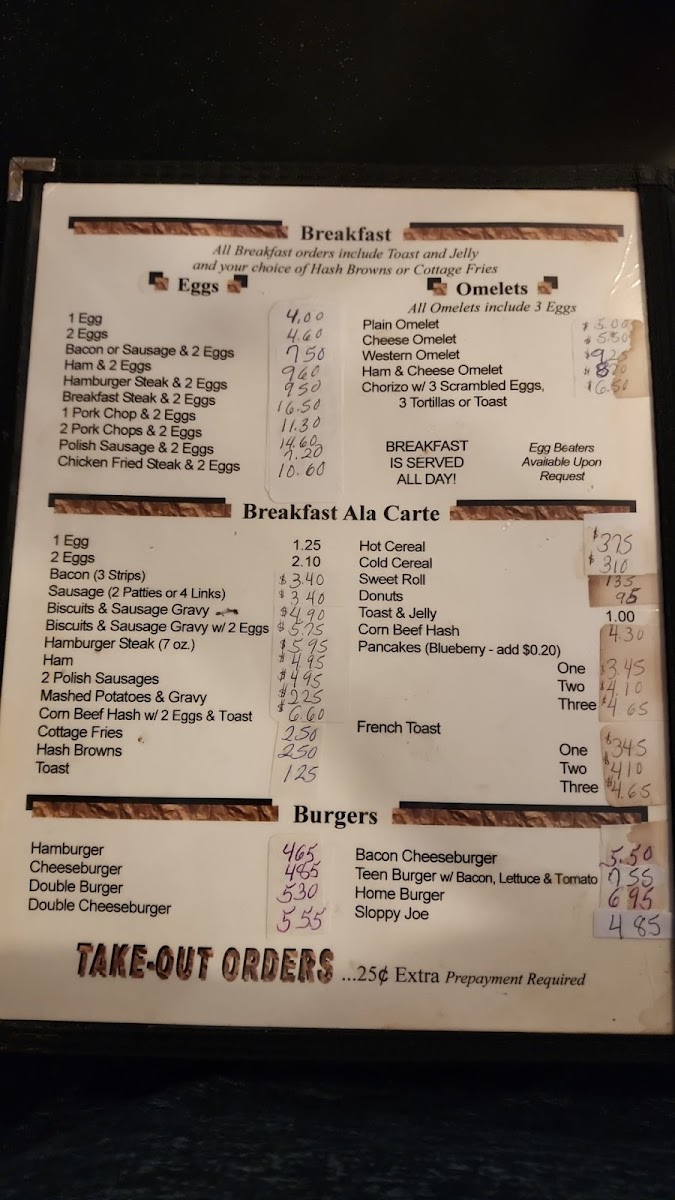 Breakfast
All Breakfast orders include Toast and Jelly
and your choice of Hash Browns or Cottage Fries
Eggs
1 Egg 4.00
2 Eggs 4.60
Bacon or Sausage & 2 Eggs 7 50
Ham & 2 Eggs 960
Hamburger Steak & 2 Eggs 950
Breakfast Steak & 2 Eggs 16.50
1 Pork Chop & 2 Eggs 11.30
2 Pork Chops & 2 Eggs 14.60
Polish Sausage & 2 Eggs 7.20
Chicken Fried Steak & 2 Eggs 10.60
Omelets
All Omelets include 3 Eggs
Plain Omelet $5.00
Cheese Omelet $5.50
Western Omelet
Ham & Cheese Omelet
Chorizo w/ 3 Scrambled Eggs, $6.50
3 Tortillas or Toast
BREAKFAST
IS SERVED
ALL DAY!
Egg Beaters
Available Upon
Request
Breakfast Ala Carte
1 Egg 1.25
2 Eggs 2.10
Bacon (3 Strips) $3.40
Sausage (2 Patties or 4 Links) $3.40
Biscuits & Sausage Gravy $4.90
Biscuits & Sausage Gravy w/ 2 Eggs $5.75
Hamburger Steak (7 oz.) $5.95
Ham $4.95
2 Polish Sausages $4.95
Mashed Potatoes & Gravy $225
Corn Beef Hash w/ 2 Eggs & Toast $6.60
Cottage Fries 250
Hash Browns 250
Toast 125
Hot Cereal $375
Cold Cereal $310
Sweet Roll 135
Donuts 95
Toast & Jelly 1.00
Corn Beef Hash 4.30
Pancakes (Blueberry - add $0.20)
One $3.45
Two $4.10
Three $4 65
French Toast
One $345
Two $410
Three $4.65
Burgers
Hamburger 465
Cheeseburger 485
Double Burger 530
Double Cheeseburger 555
Bacon Cheeseburger 5.50
Teen Burger w/ Bacon, Lettuce & Tomato 7 55
Home Burger 6 95
Sloppy Joe 4 85
TAKE-OUT ORDERS ...25¢ Extra Prepayment Required